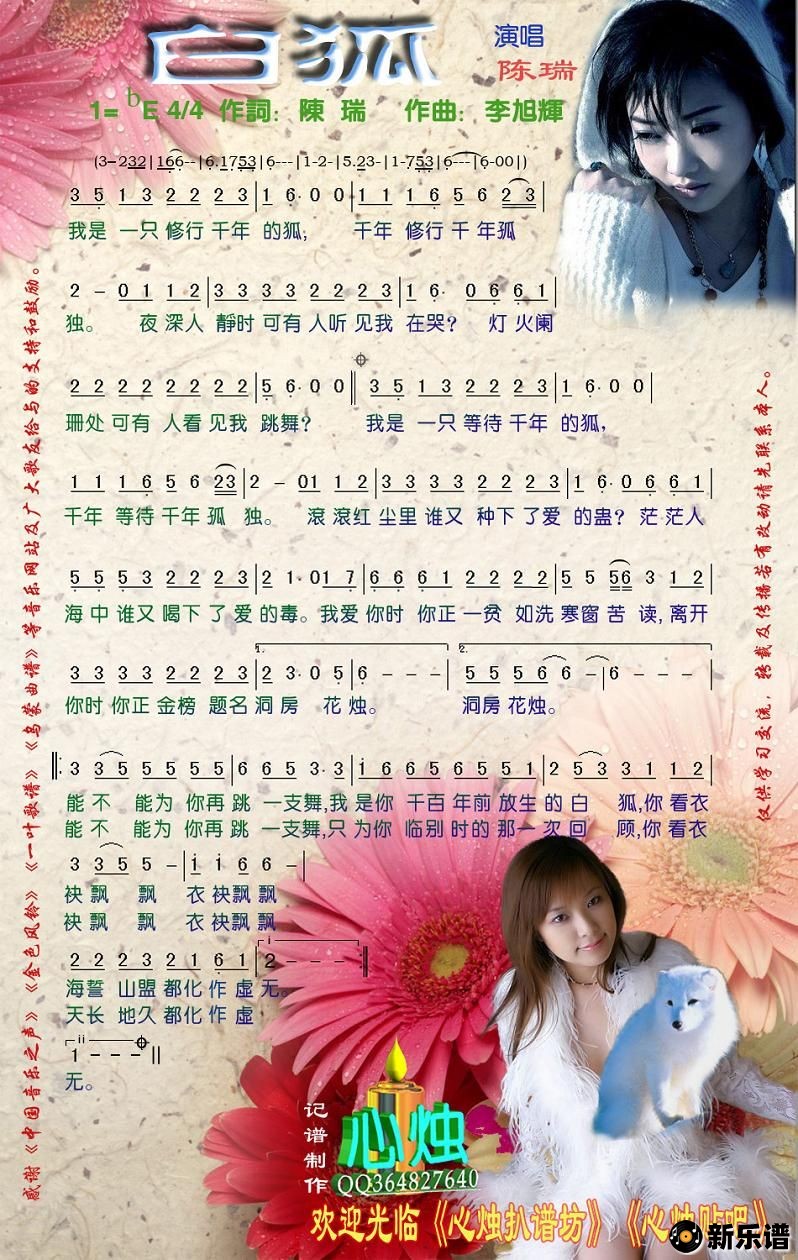 白狐
演唱
陈瑞
1= bE 4/4 作詞：陳 瑞 作曲：李旭輝
(3-232|166--|6.1753|6---|1-2-|5.23-|1-753|6---|6-00|)
3 5 1 3 2 2 2 3|1 6· 0 0|1 1 1 6 5 6 2 3|
我是 一只 修行 千年 的狐， 千年 修行 千 年孤
2 - 0 1 1 2|3 3 3 3 2 2 2 3|1 6· 0 6 6 1|
独。 夜 深人 靜时 可有 人听 见我 在哭？ 灯 火阑
2 2 2 2 2 2 2 2|5 6· 0 0‖3 5 1 3 2 2 2 3|1 6· 0 0|
珊处 可有 人看 见我 跳舞？ 我是 一只 等待 千年 的狐，
1 1 1 6 5 6 23|2 - 01 1 2|3 3 3 3 2 2 2 3|1 6· 0 6 6 1|
千年 等待 千年 孤 独。 滚 滚红 尘里 谁又 种下 了爱 的蛊？茫 茫人
5 5 5 3 2 2 2 2|2 1·01 7|6 6 6 1 2 2 2 2|5 5 56 3 1 2|
海中 谁又 喝下 了 爱 的毒。我爱 你时 你正 一贫 如洗 寒窗 苦 读，离开
3 3 3 3 2 2 2 3|2 3· 0 5|6 - - -|5 5 5 6 6 -|6 - - -|
1. 2.
你时 你正 金榜 题名 洞 房 花 烛。 洞房 花烛。
‖: 3 3 5 5 5 5 5|6 6 5 3·3|1 6 6 5 6 5 5 1|2 5 3 3 1 1 2|
能 不 能为 你再 跳 一支舞,我 是你 千百 年前 放生 的 白 狐,你 看衣
能 不 能为 你再 跳 一支舞,只 为你 临别 时的 那一 次 回 顾,你 看衣
3 3 5 5 -|i i 6 6 -|
袂 飘 飘 衣 袂飘 飘
袂 飘 飘 衣 袂飘 飘
2 2 2 3 2 1 6 1|2 - - - :‖
i
海誓 山盟 都化 作 虚 无。
天长 地久 都化 作 虚
ii
1 - - -‖
无。
感谢《中国音乐之声》《金色风铃》《一叶歌谱》《乌蒙曲谱》等音乐网站及广大歌友给与的支持和鼓励。
仅供学习交流，转载及传播若有改动请先联系本人。
记谱制作
心烛
QQ364827640
欢迎光临《心烛扒谱坊》《心烛贴吧》
新乐谱